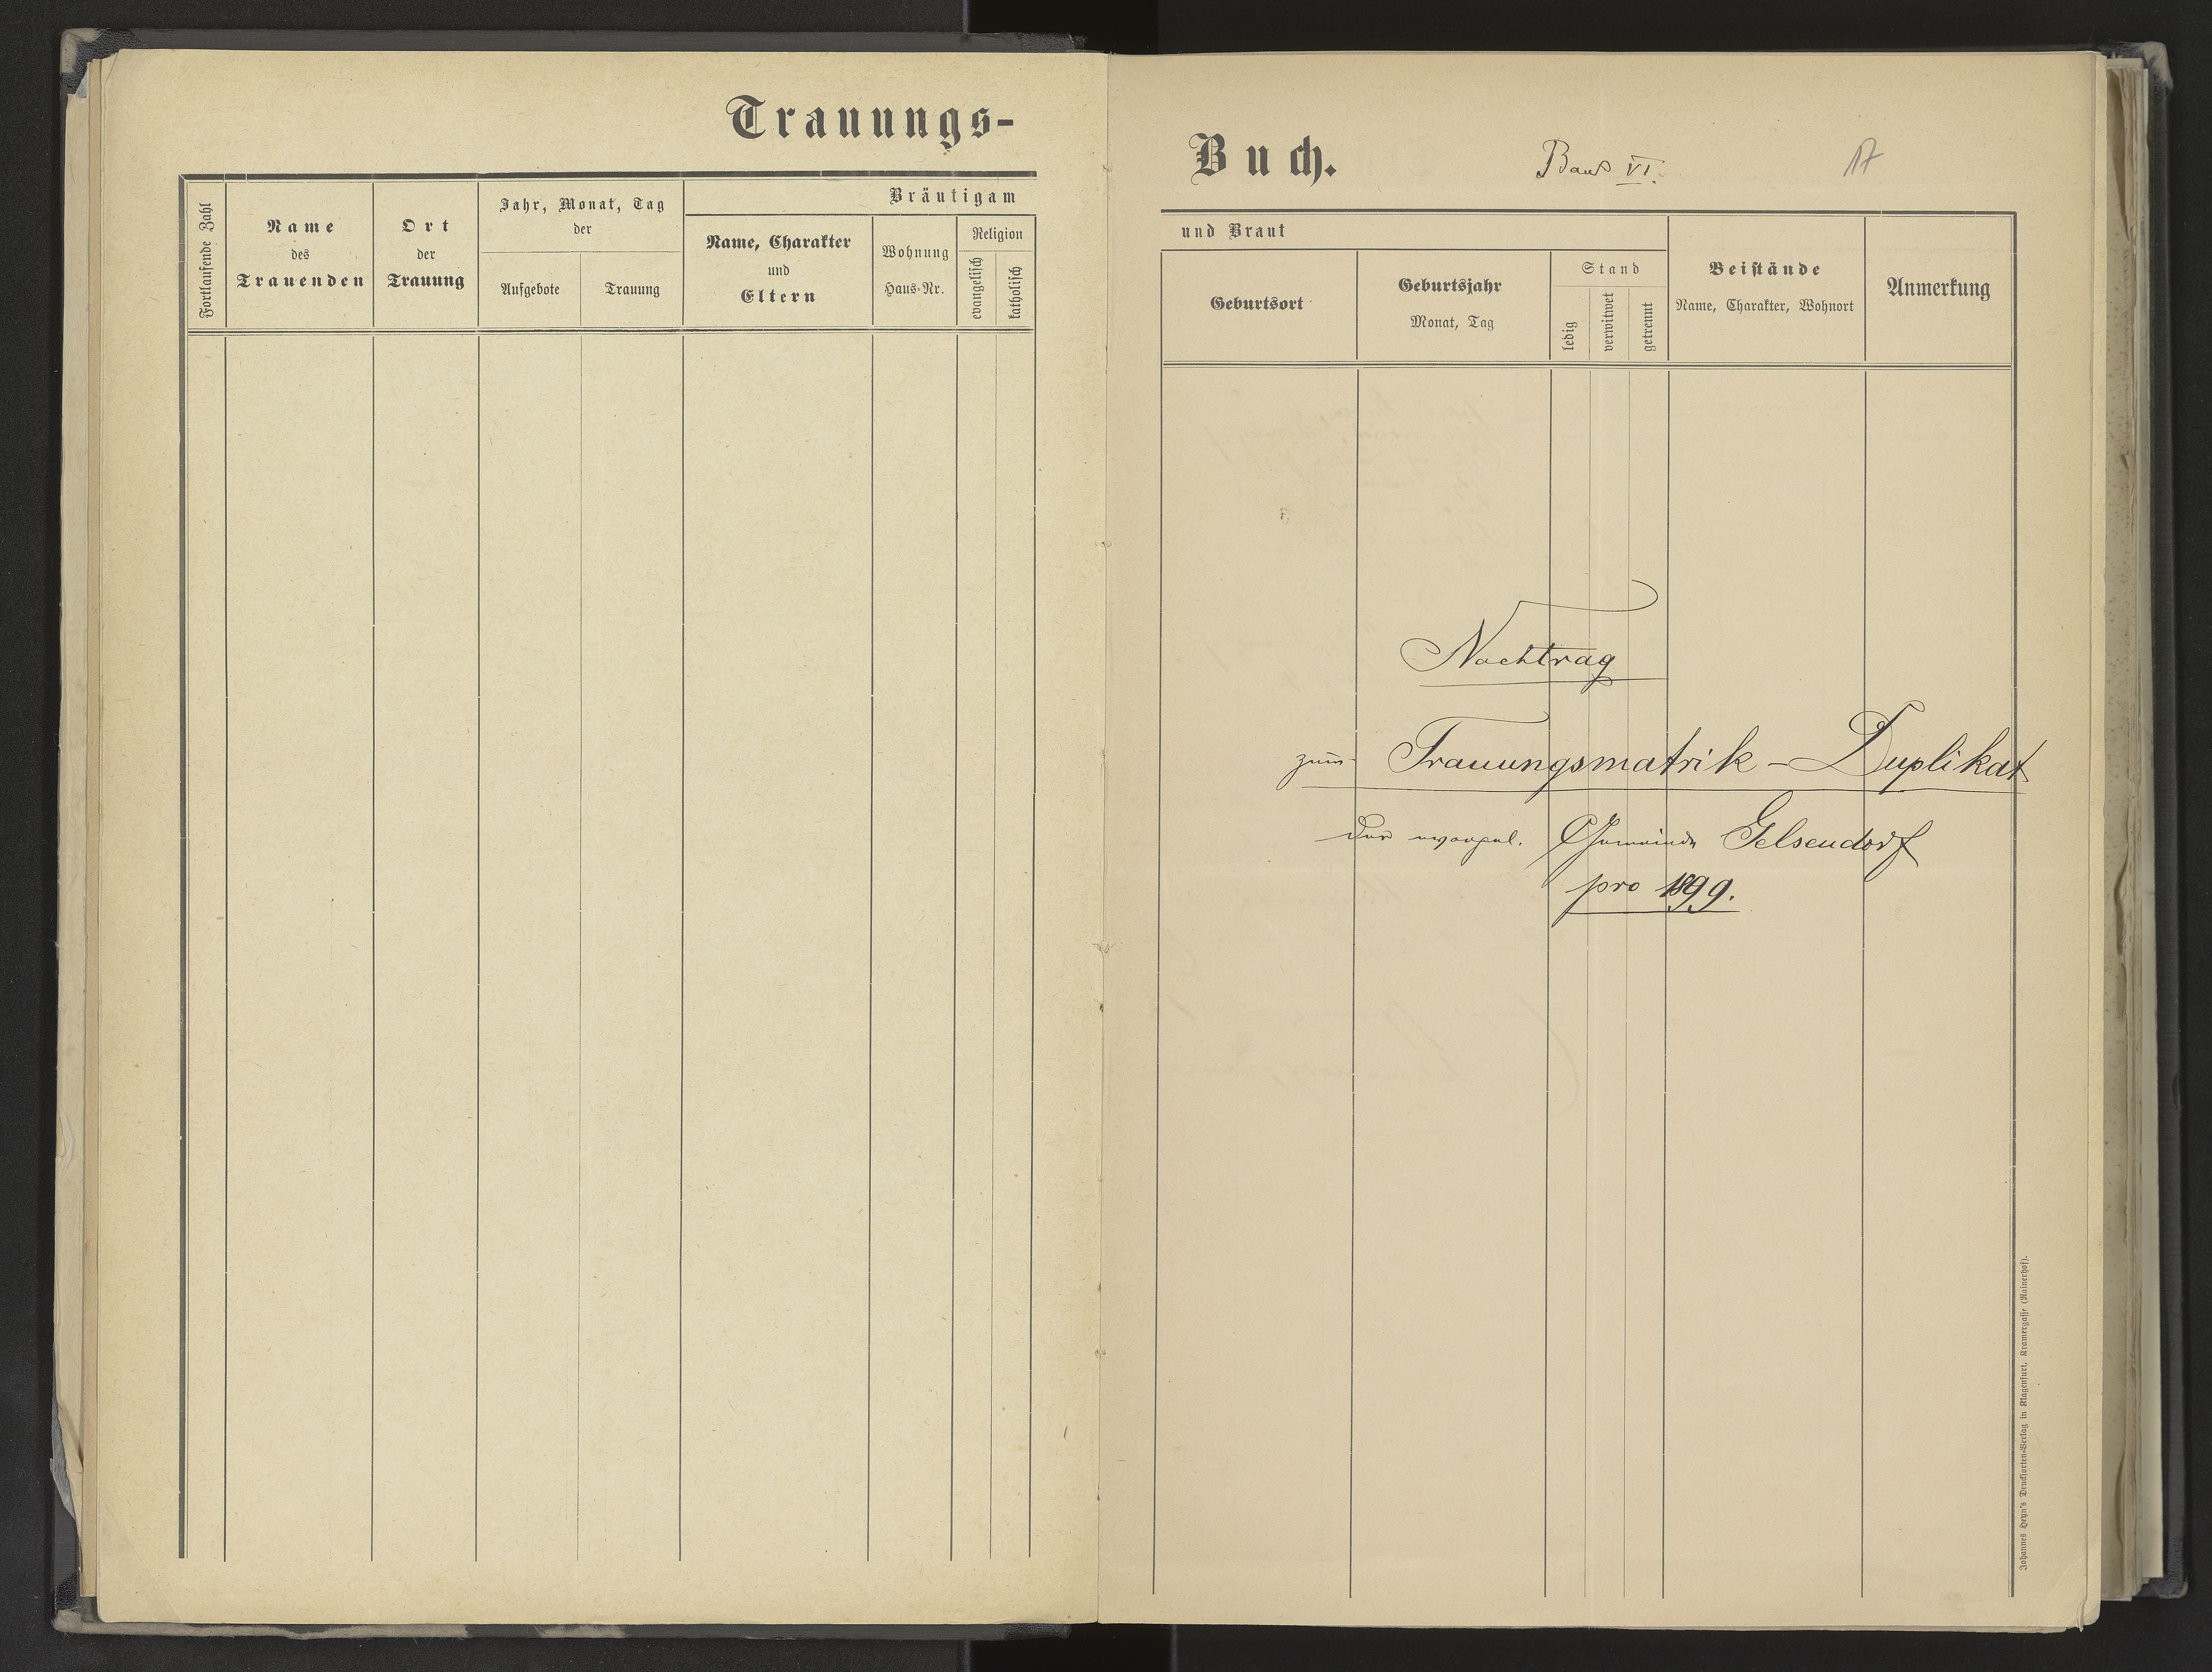 Trauungs-
Fortlaufende Zahl
Name
des
Trauenden
Ort
der
Trauung
Jahr, Monat, Tag
der
Aufgebote
Trauung
Bräutigam
Name, Charakter
und
Eltern
Wohnung
Haus-Nr.
Religion
evangelisch
katholisch
Buch.
Band VI.
17
und Braut
Geburtsort
Geburtsjahr
Monat, Tag
Stand
ledig
verwitwet
getrennt
Beistände
Name, Charakter, Wohnort
Anmerkung
Nachtrag
zum Trauungsmatrik - Duplikat
der evangel. Gemeinde Gelsendorf
pro 1899.
Johannes Heyn's Drucksorten-Verlag in Klagenfurt, Kramergasse (Rainerhof).